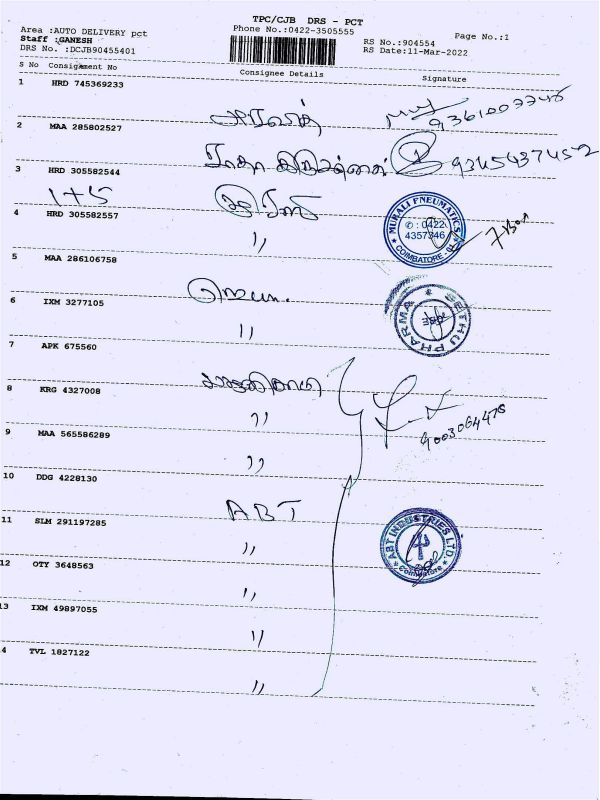 TPC/CJB DRS - PCT
Area :AUTO DELIVERY pct
Phone No.:0422-3505555
Page No.:1
Staff :GANESH
RS No.:904554
DRS No. :DCJB90455401
RS Date:11-Mar-2022
S No Consignment No
Consignee Details
Signature
1 HRD 745369233
9361007748
2 MAA 285802527
3 HRD 305582544
9345437452
1+5
4 HRD 305582557
"
MURALI PNEUMATICS
✆ : 0422
4357346
COIMBATORE
5 MAA 286106758
6 IXM 3277105
"
SETHU PHARMA
7 APK 675560
8 KRG 4327008
"
9003064478
9 MAA 565586289
"
10 DDG 4228130
ABT
11 SLM 291197285
"
ABT INDUSTRIES LTD.
Coimbatore
12 OTY 3648563
"
13 IXM 49897055
"
14 TVL 1827122
"